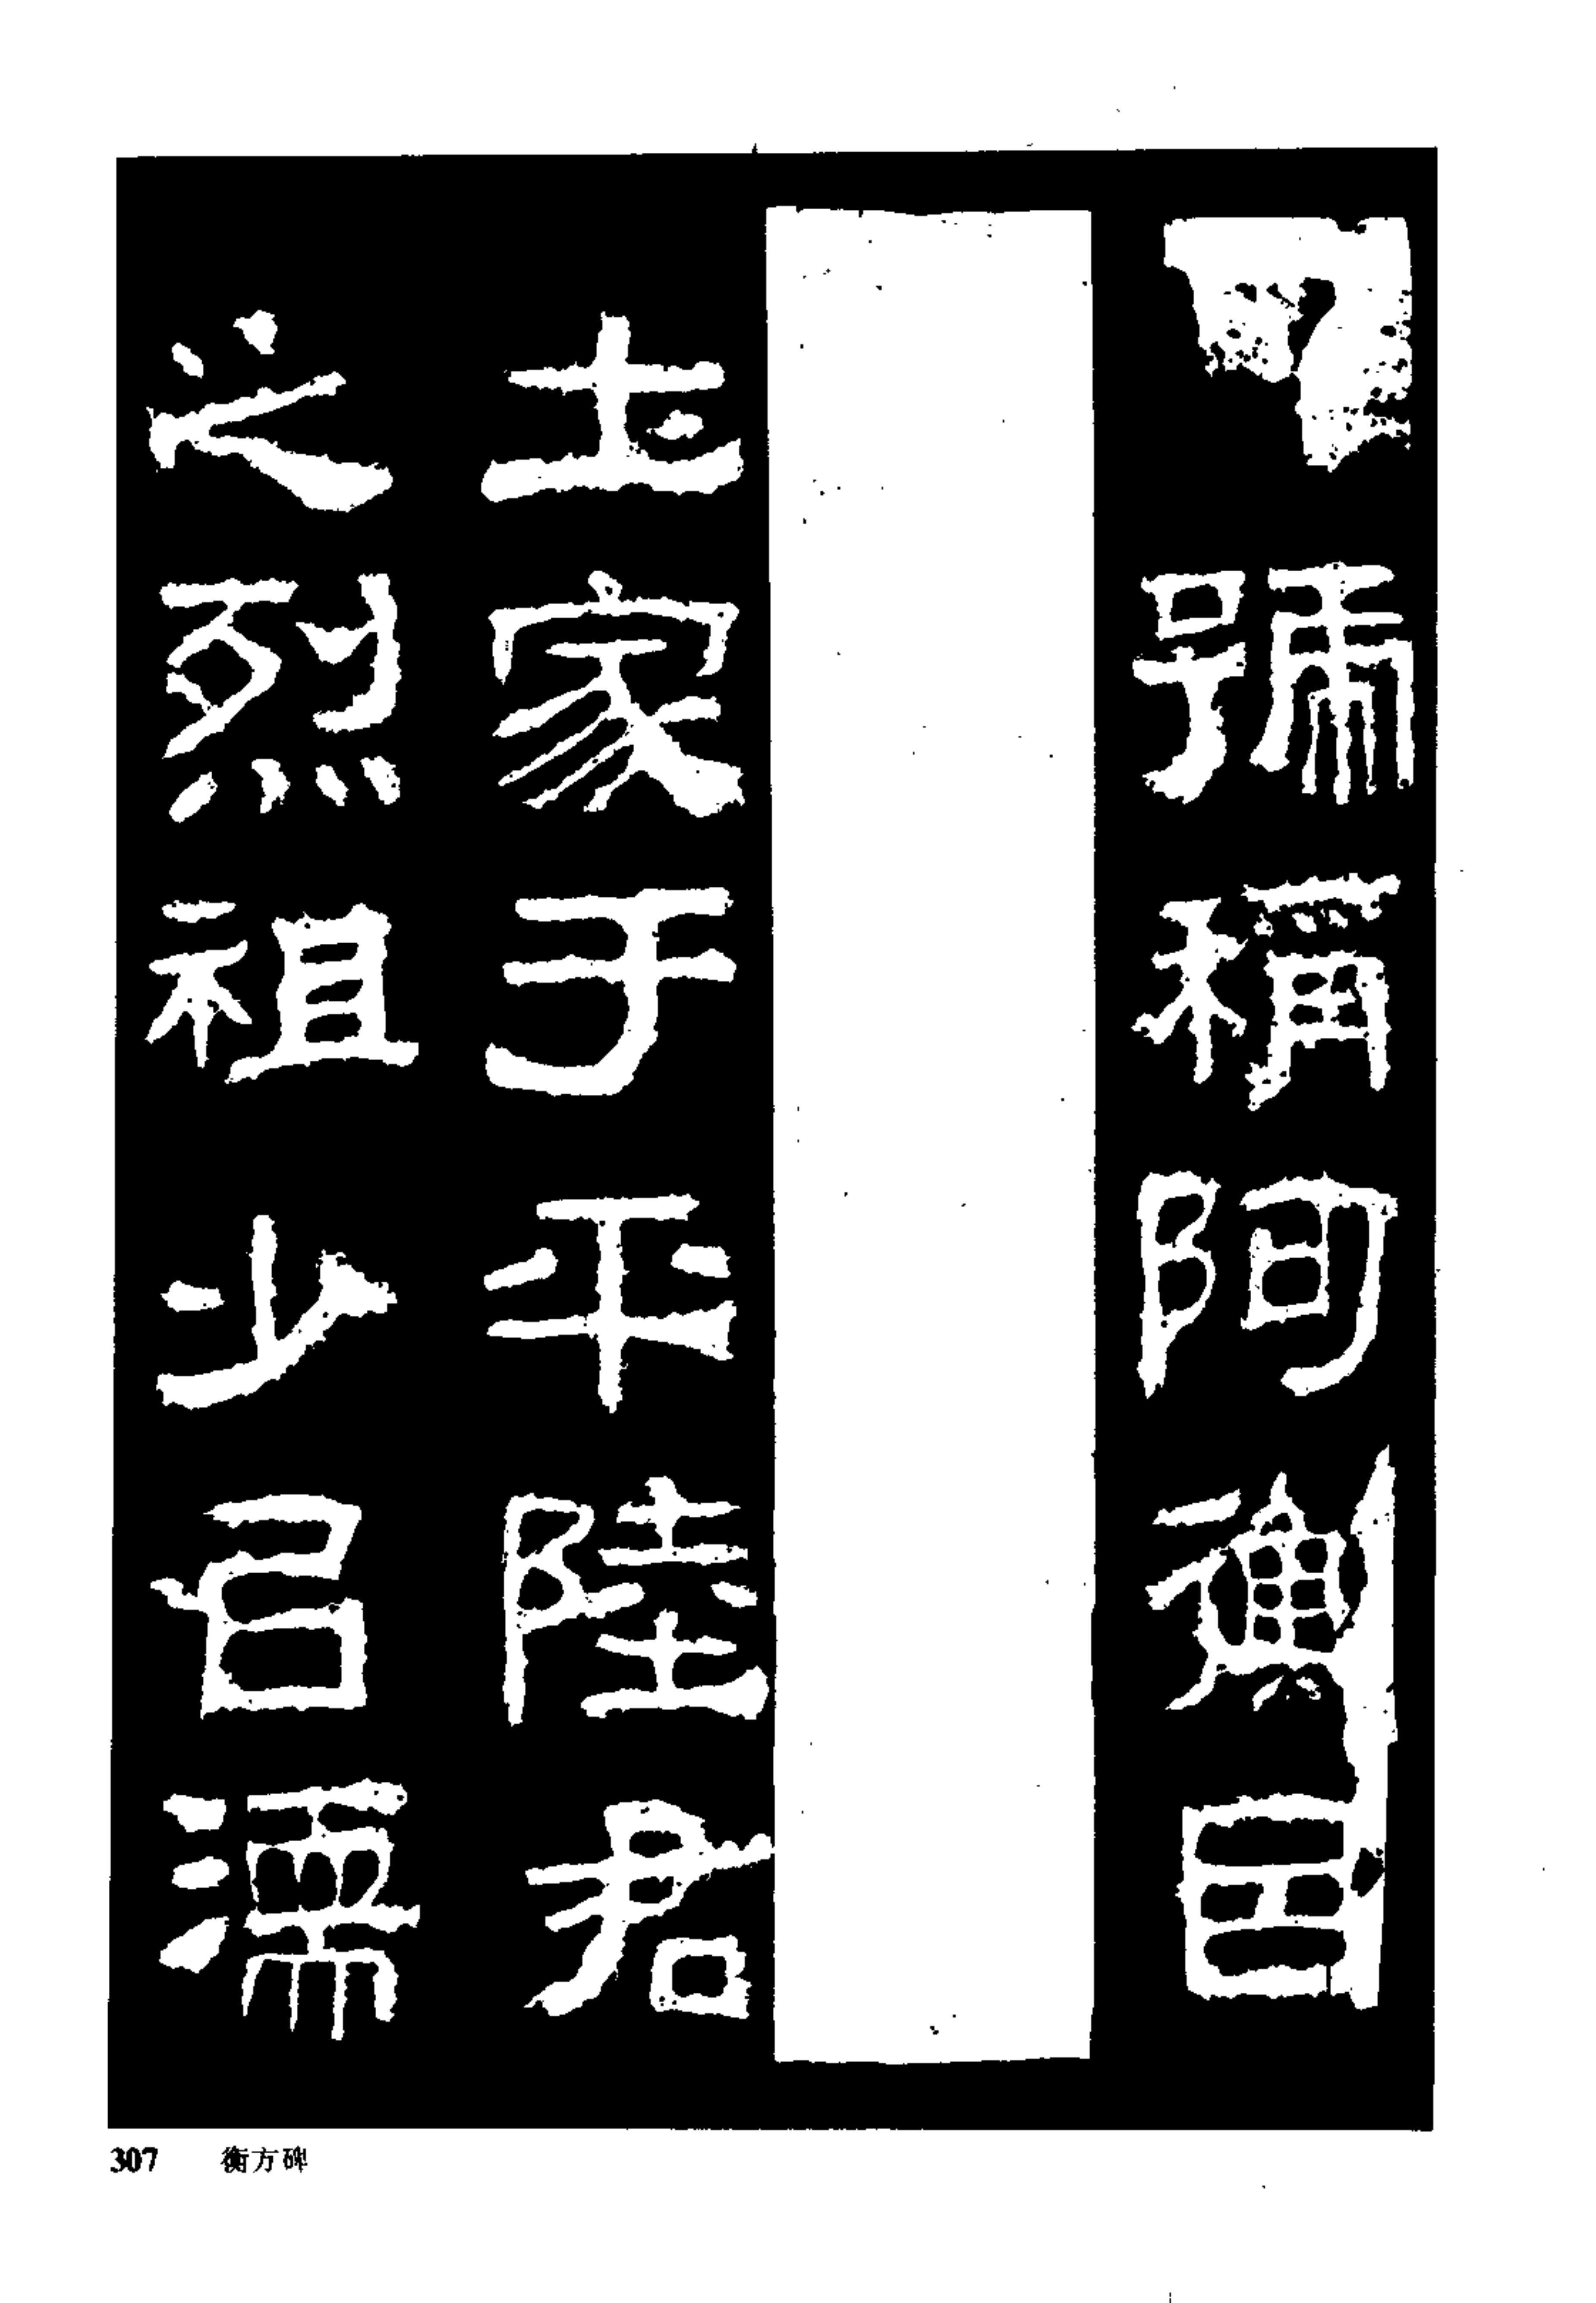 號稱阿衡因
土家于平陸君
之烈祖少以濡
307 衡方碑